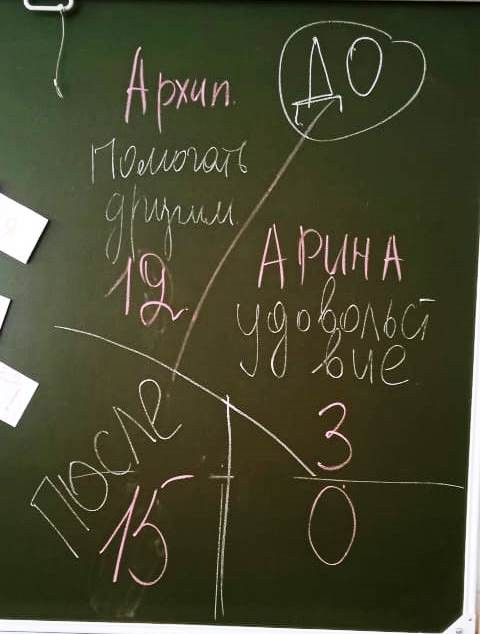 ДО
Архип.
Помогать
другим.
12
АРИНА
удовольст
вие
После
3
15
0